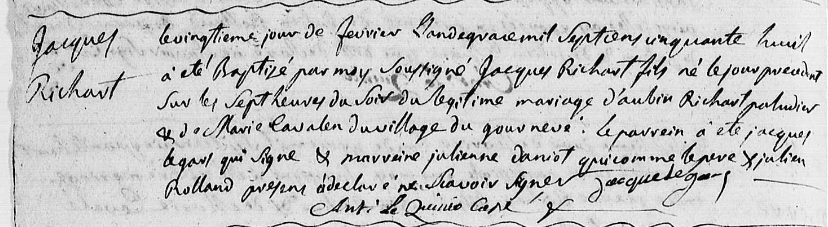 Jacques
Richart
le vingtieme jour de fevrier L'an de grace mil Septcens cinquante huit
à eté Baptizé par moy Soussigné Jacques Richart fils né le jour precedent
Sur les Sept heures du Soir du legitime mariage d'aubin Richart paludier
& de Marie Cavalen du village du gourneve : Le parrein à eté jacques
legars qui Signe & marreine julienne daniot qui comme le pere & julien
Rolland presens à declaré ne Scavoir Signer Jacque le gars
Ant: Le Quinio Curé